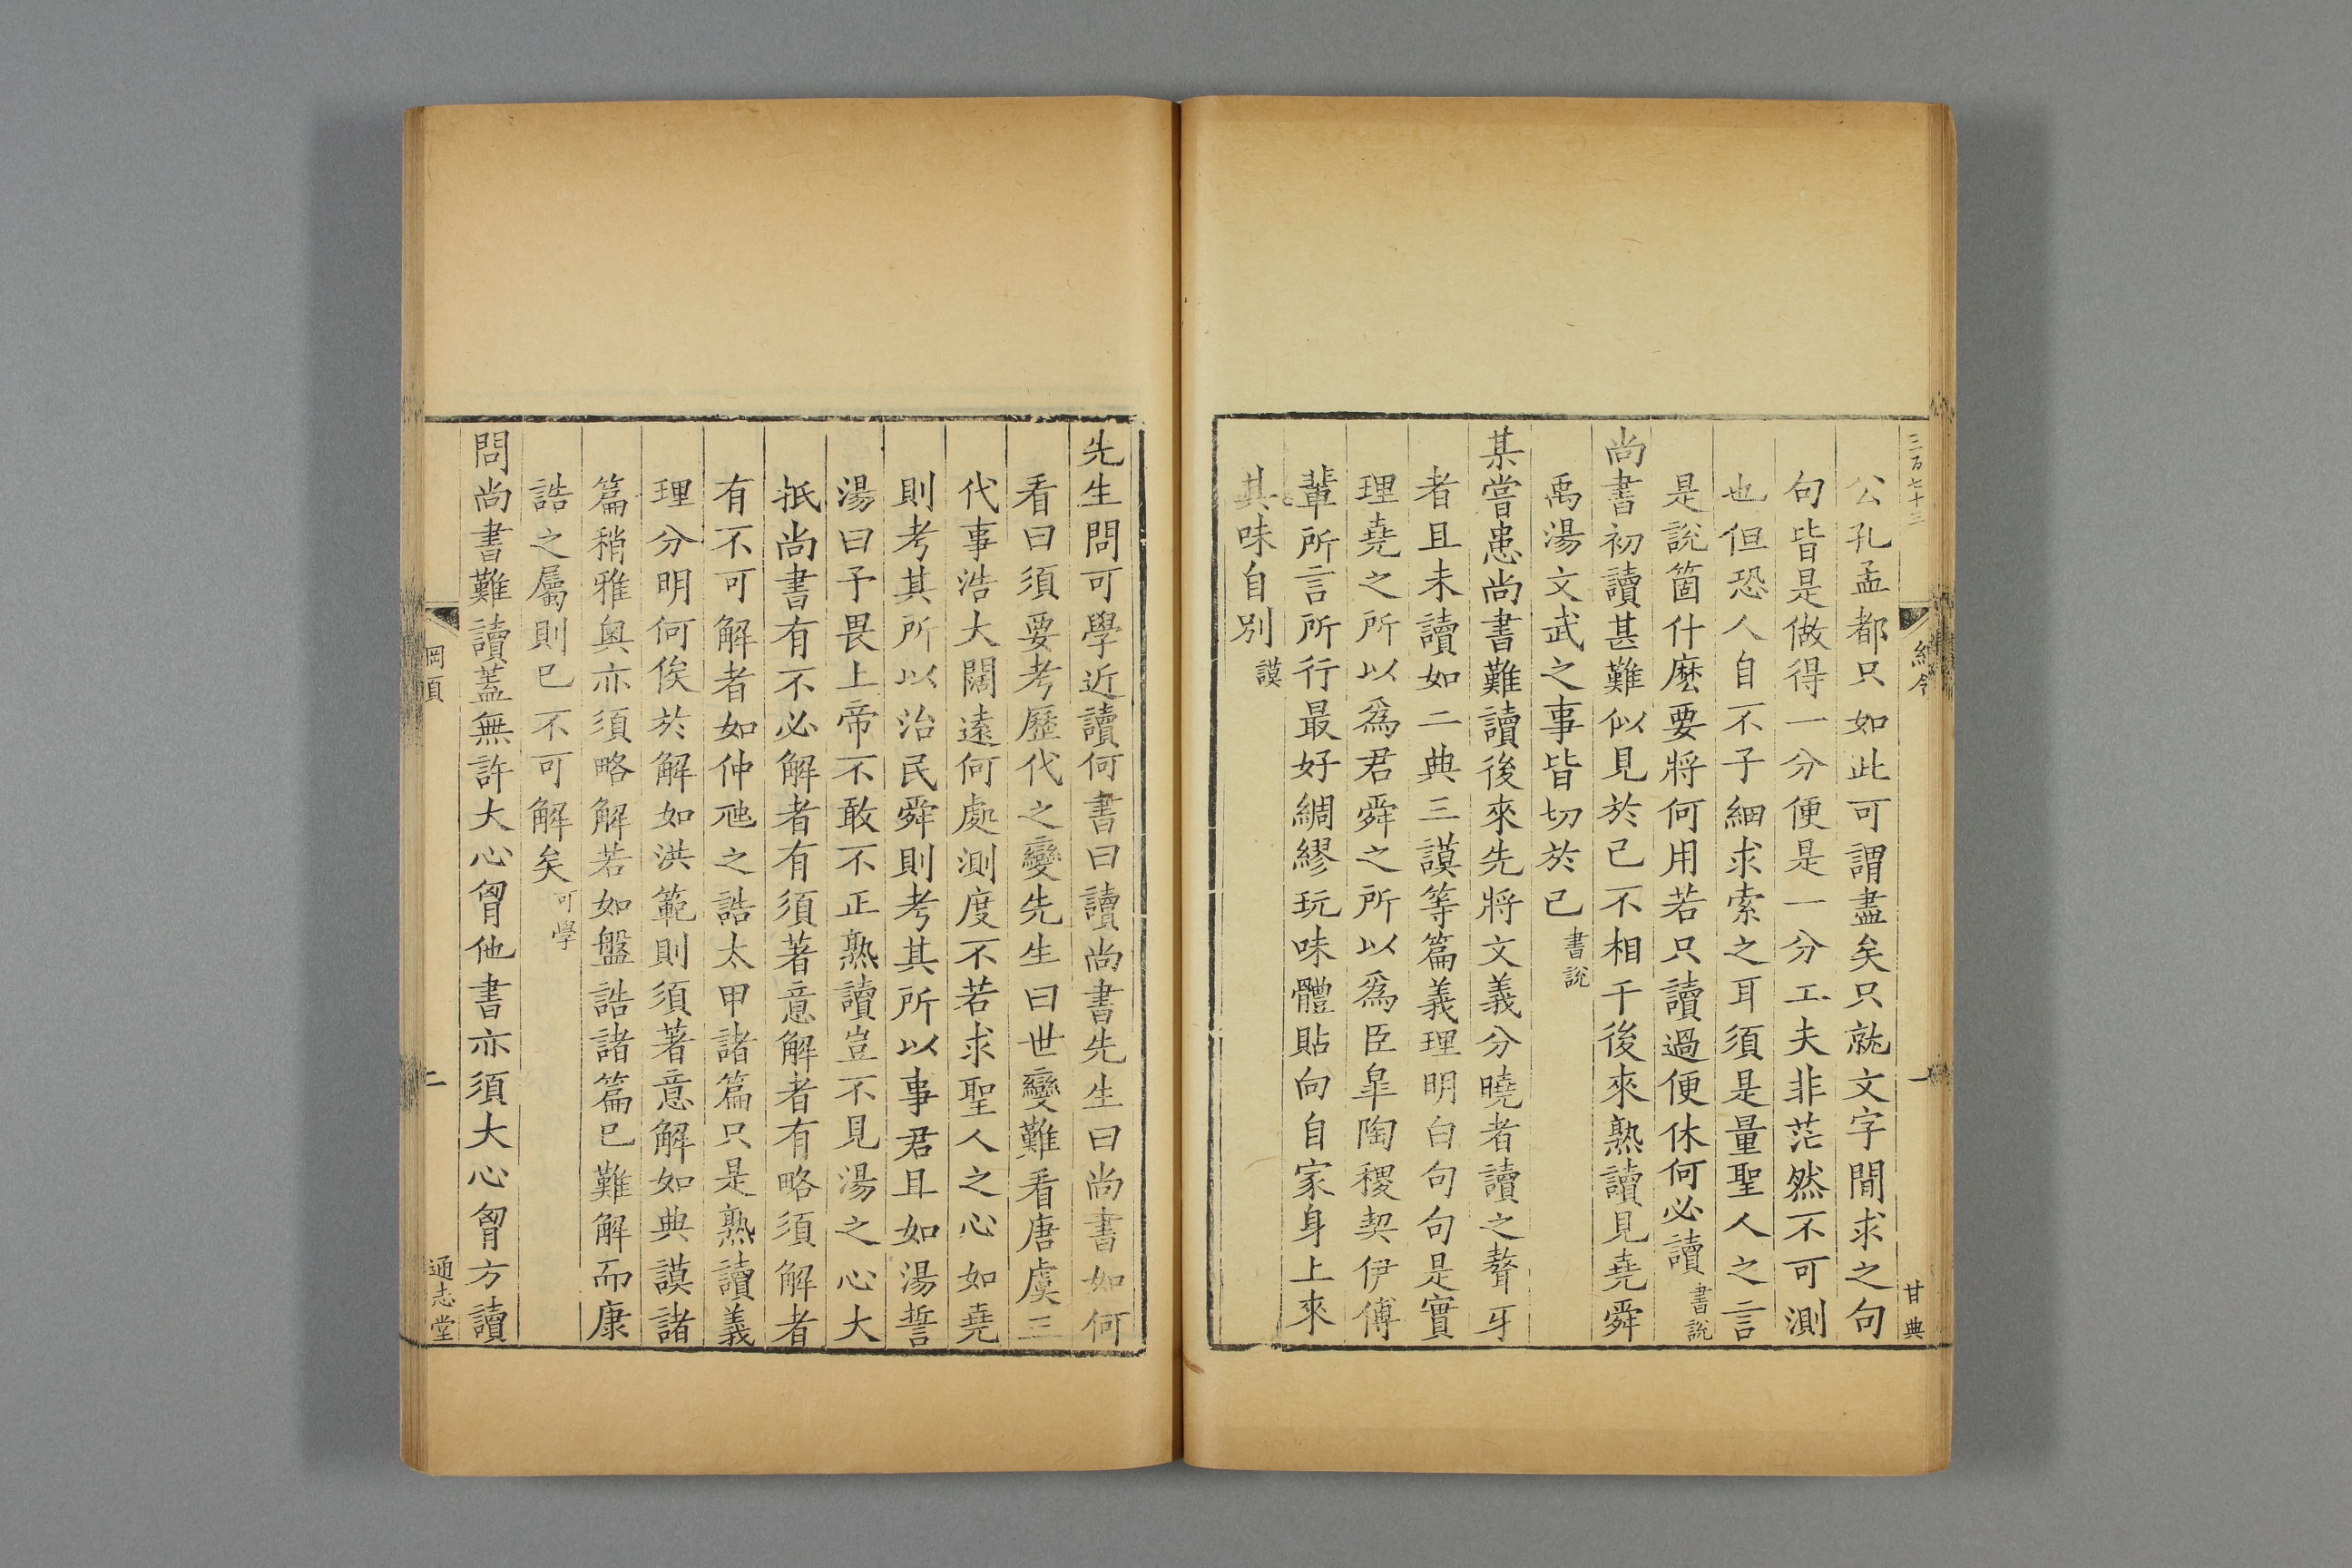 三百七十三
甘典
公孔孟都只如此可謂盡矣只就文字閒求之句
句皆是做得一分便是一分工夫非茫然不可測
也但恐人自不子細求索之耳須是量聖人之言
是說箇什麽要將何用若只讀過便休何必讀書說
尚書初讀甚難似見於己不相干後來熟讀見堯舜
禹湯文武之事皆切於己書說
某嘗患尚書難讀後來先將文義分曉者讀之聱牙
者且未讀如二典三謨等篇義理明白句句是實
理堯之所以爲君舜之所以爲臣臯陶稷契伊傅
輩所言所行最好綢繆玩味體貼向自家身上來
其味自別謨
先生問可學近讀何書曰讀尚書先生曰尚書如何
看曰須要考歷代之變先生曰世變難看唐虞三
代事浩大闊遠何處測度不若求聖人之心如堯
則考其所以治民舜則考其所以事君且如湯誓
湯曰予畏上帝不敢不正熟讀豈不見湯之心大
抵尚書有不必解者有須著意解者有略須解者
有不可解者如仲虺之誥太甲諸篇只是熟讀義
理分明何俟於解如洪範則須著意解如典謨諸
篇稍雅奥亦須略解若如盤誥諸篇已難解而康
誥之屬則已不可解矣可學
問尚書難讀蓋無許大心胷他書亦須大心胷方讀
二
通志堂